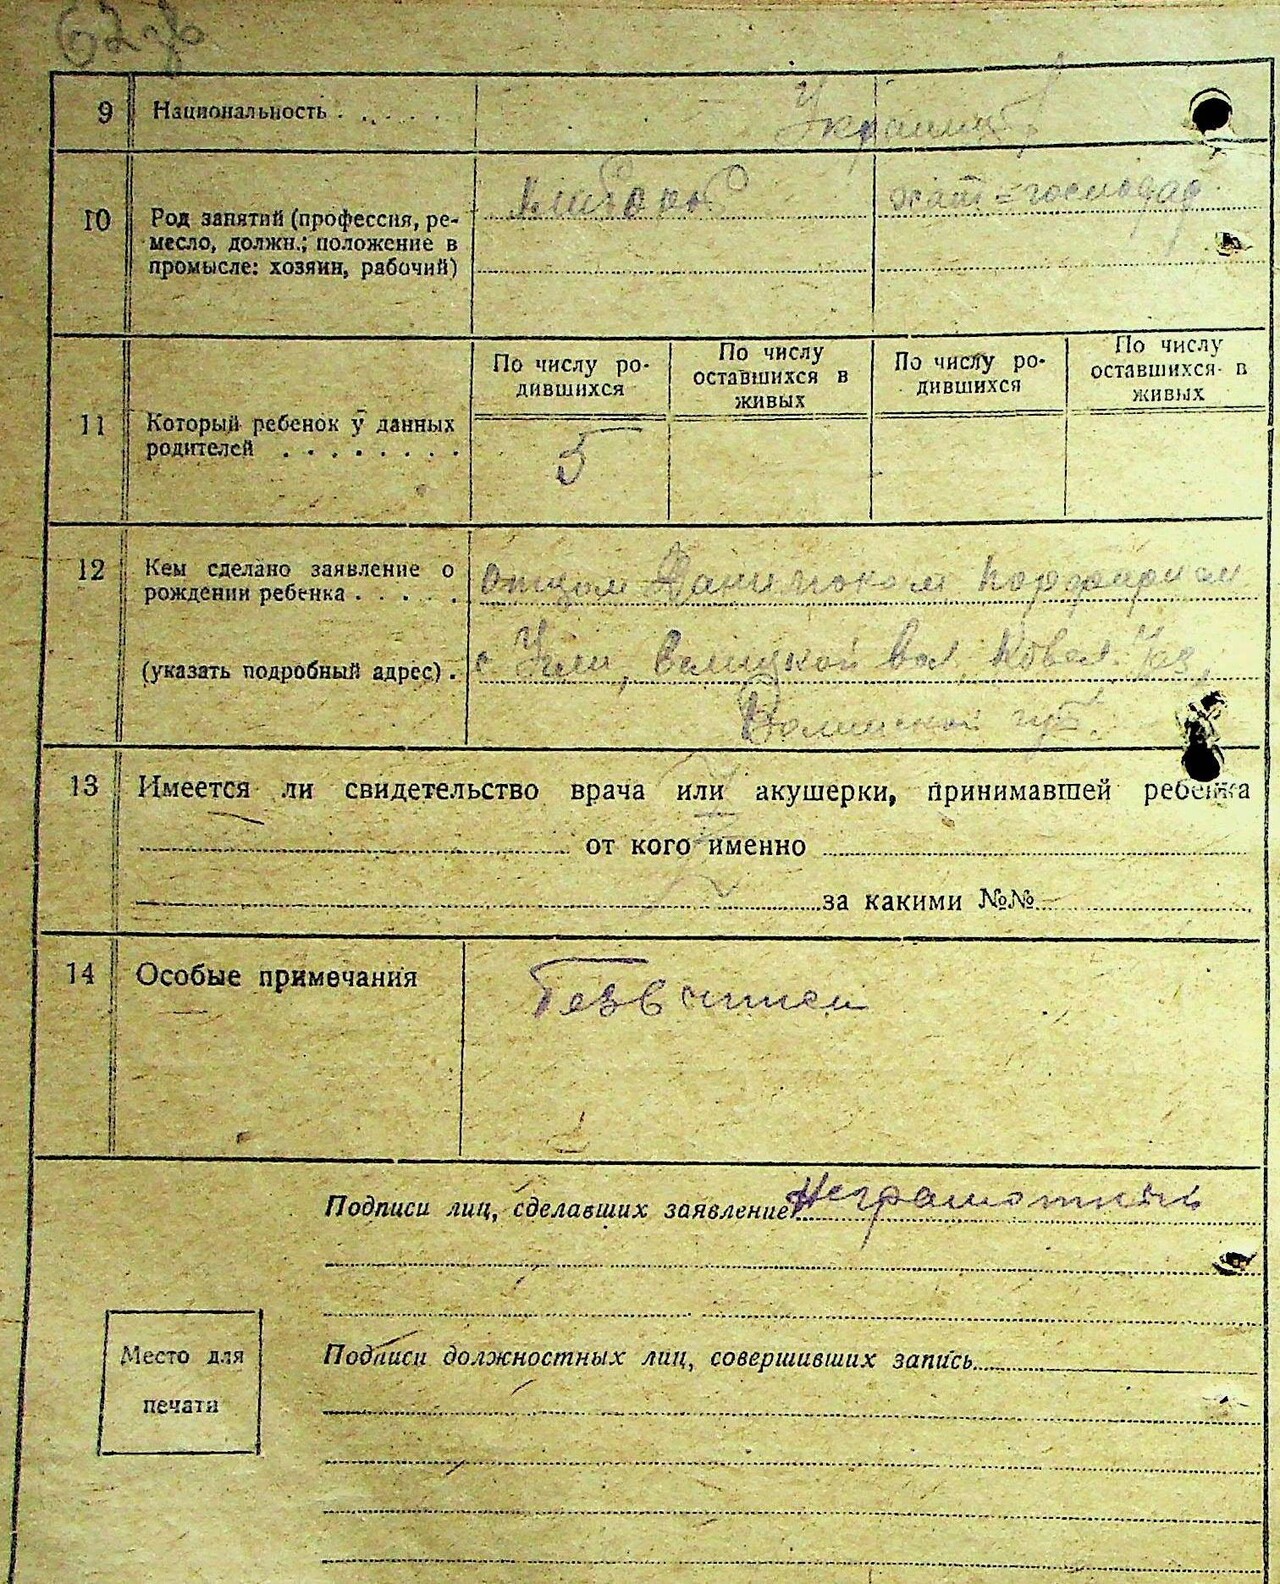 62 зв
9 Национальность . . . . . . Украинцы
10 Род занятий (профессия, ре-
месло, должн.; положение в
промысле: хозяин, рабочий)
Хлибороб хат=господар
11 Который ребенок у данных
родителей . . . . . . . .
По числу ро-
дившихся
По числу
оставшихся в
живых
По числу ро-
дившихся
По числу
оставшихся в
живых
5
12 Кем сделано заявление о
рождении ребенка . . . . .
отцом Данилюком Порфирием
(указать подробный адрес) .
с Угли, Велицкой вол. Ковел. Уез,
Волинской губ.
13 Имеется ли свидетельство врача или акушерки, принимавшей ребенка
от кого именно
за какими №№
14 Особые примечания
Подписи лиц, сделавших заявление: Неграмотний
Подписи должностных лиц, совершивших запись
Место для
печати